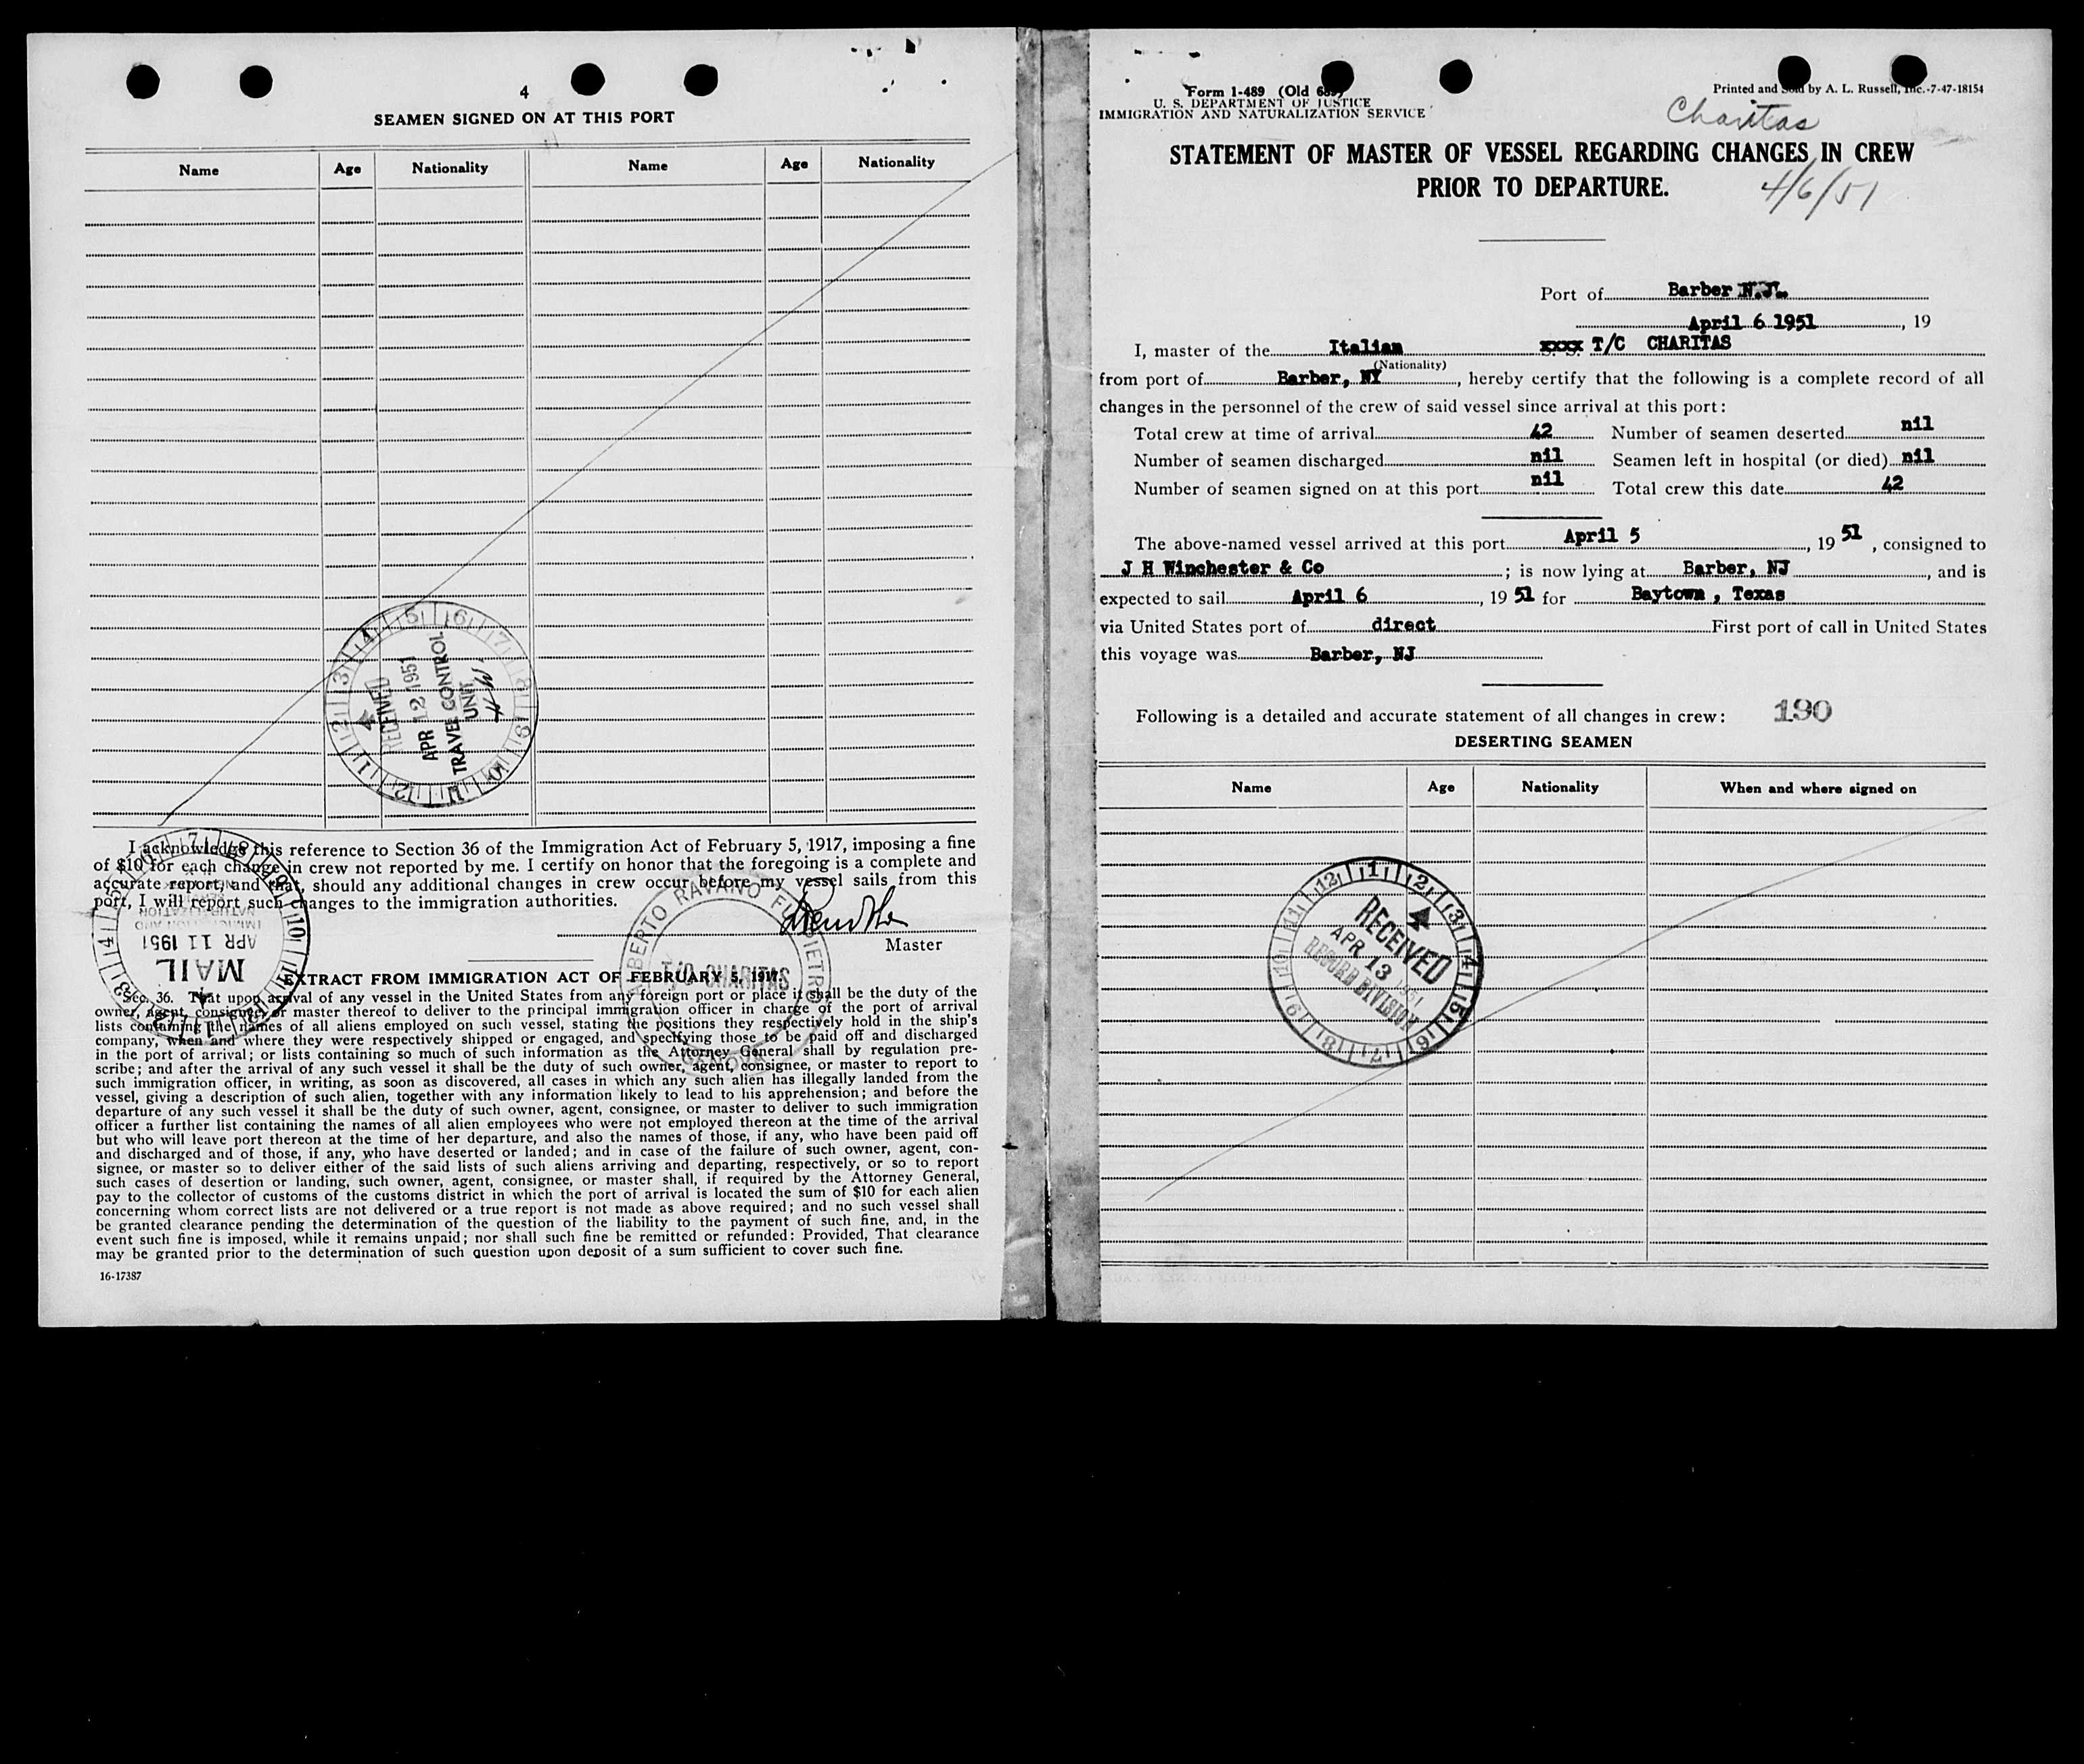 4
SEAMEN SIGNED ON AT THIS PORT
Name Age Nationality Name Age Nationality
RECEIVED
APR 12 1951
TRAVEL CONTROL
UNIT
I acknowledge this reference to Section 36 of the Immigration Act of February 5, 1917, imposing a fine
of $10 for each change in crew not reported by me. I certify on honor that the foregoing is a complete and
accurate report, and that, should any additional changes in crew occur before my vessel sails from this
port, I will report such changes to the immigration authorities.
Master
APR 11 1951
MAIL
ALBERTO RAVANO FU PIETRO
T/C CHARITAS
GENOVA
EXTRACT FROM IMMIGRATION ACT OF FEBRUARY 5, 1917.
Sec. 36. That upon arrival of any vessel in the United States from any foreign port or place it shall be the duty of the
owner, agent, consignee, or master thereof to deliver to the principal immigration officer in charge of the port of arrival
lists containing the names of all aliens employed on such vessel, stating the positions they respectively hold in the ship's
company, when and where they were respectively shipped or engaged, and specifying those to be paid off and discharged
in the port of arrival; or lists containing so much of such information as the Attorney General shall by regulation pre-
scribe; and after the arrival of any such vessel it shall be the duty of such owner, agent, consignee, or master to report to
such immigration officer, in writing, as soon as discovered, all cases in which any such alien has illegally landed from the
vessel, giving a description of such alien, together with any information likely to lead to his apprehension; and before the
departure of any such vessel it shall be the duty of such owner, agent, consignee, or master to deliver to such immigration
officer a further list containing the names of all alien employees who were not employed thereon at the time of the arrival
but who will leave port thereon at the time of her departure, and also the names of those, if any, who have been paid off
and discharged and of those, if any, who have deserted or landed; and in case of the failure of such owner, agent, con-
signee, or master so to deliver either of the said lists of such aliens arriving and departing, respectively, or so to report
such cases of desertion or landing, such owner, agent, consignee, or master shall, if required by the Attorney General,
pay to the collector of customs of the customs district in which the port of arrival is located the sum of $10 for each alien
concerning whom correct lists are not delivered or a true report is not made as above required; and no such vessel shall
be granted clearance pending the determination of the question of the liability to the payment of such fine, and, in the
event such fine is imposed, while it remains unpaid; nor shall such fine be remitted or refunded: Provided, That clearance
may be granted prior to the determination of such question upon deposit of a sum sufficient to cover such fine.
16-17387
Form 1-489 (Old 689)
U. S. DEPARTMENT OF JUSTICE
IMMIGRATION AND NATURALIZATION SERVICE
Printed and Sold by A. L. Russell, Inc.-7-47-18154
Charitas
STATEMENT OF MASTER OF VESSEL REGARDING CHANGES IN CREW
PRIOR TO DEPARTURE.
4/6/51
Port of Barber N.J.
April 6 1951, 19
I, master of the Italian xxxx T/C CHARITAS
(Nationality)
from port of Barber, NY, hereby certify that the following is a complete record of all
changes in the personnel of the crew of said vessel since arrival at this port:
Total crew at time of arrival 42 Number of seamen deserted nil
Number of seamen discharged nil Seamen left in hospital (or died) nil
Number of seamen signed on at this port nil Total crew this date 42
The above-named vessel arrived at this port April 5, 19 51, consigned to
J H Winchester & Co; is now lying at Barber, NJ, and is
expected to sail April 6, 19 51 for Baytown, Texas
via United States port of direct First port of call in United States
this voyage was Barber, NJ
Following is a detailed and accurate statement of all changes in crew: 190
DESERTING SEAMEN
Name Age Nationality When and where signed on
RECEIVED
APR 13 1951
RECORD DIVISION